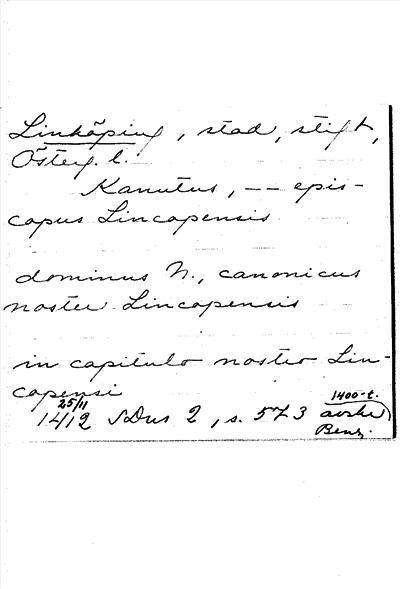 Linköping, stad, stift,
Österg. l.
Kanutus, -- epis-
copus Lincopensis
dominus N., canonicus
noster Lincopensis
in capitulo nostro Lin-
copensi
25/11
1412 SDns 2, s. 573
1400-t.
avskr
Benz.